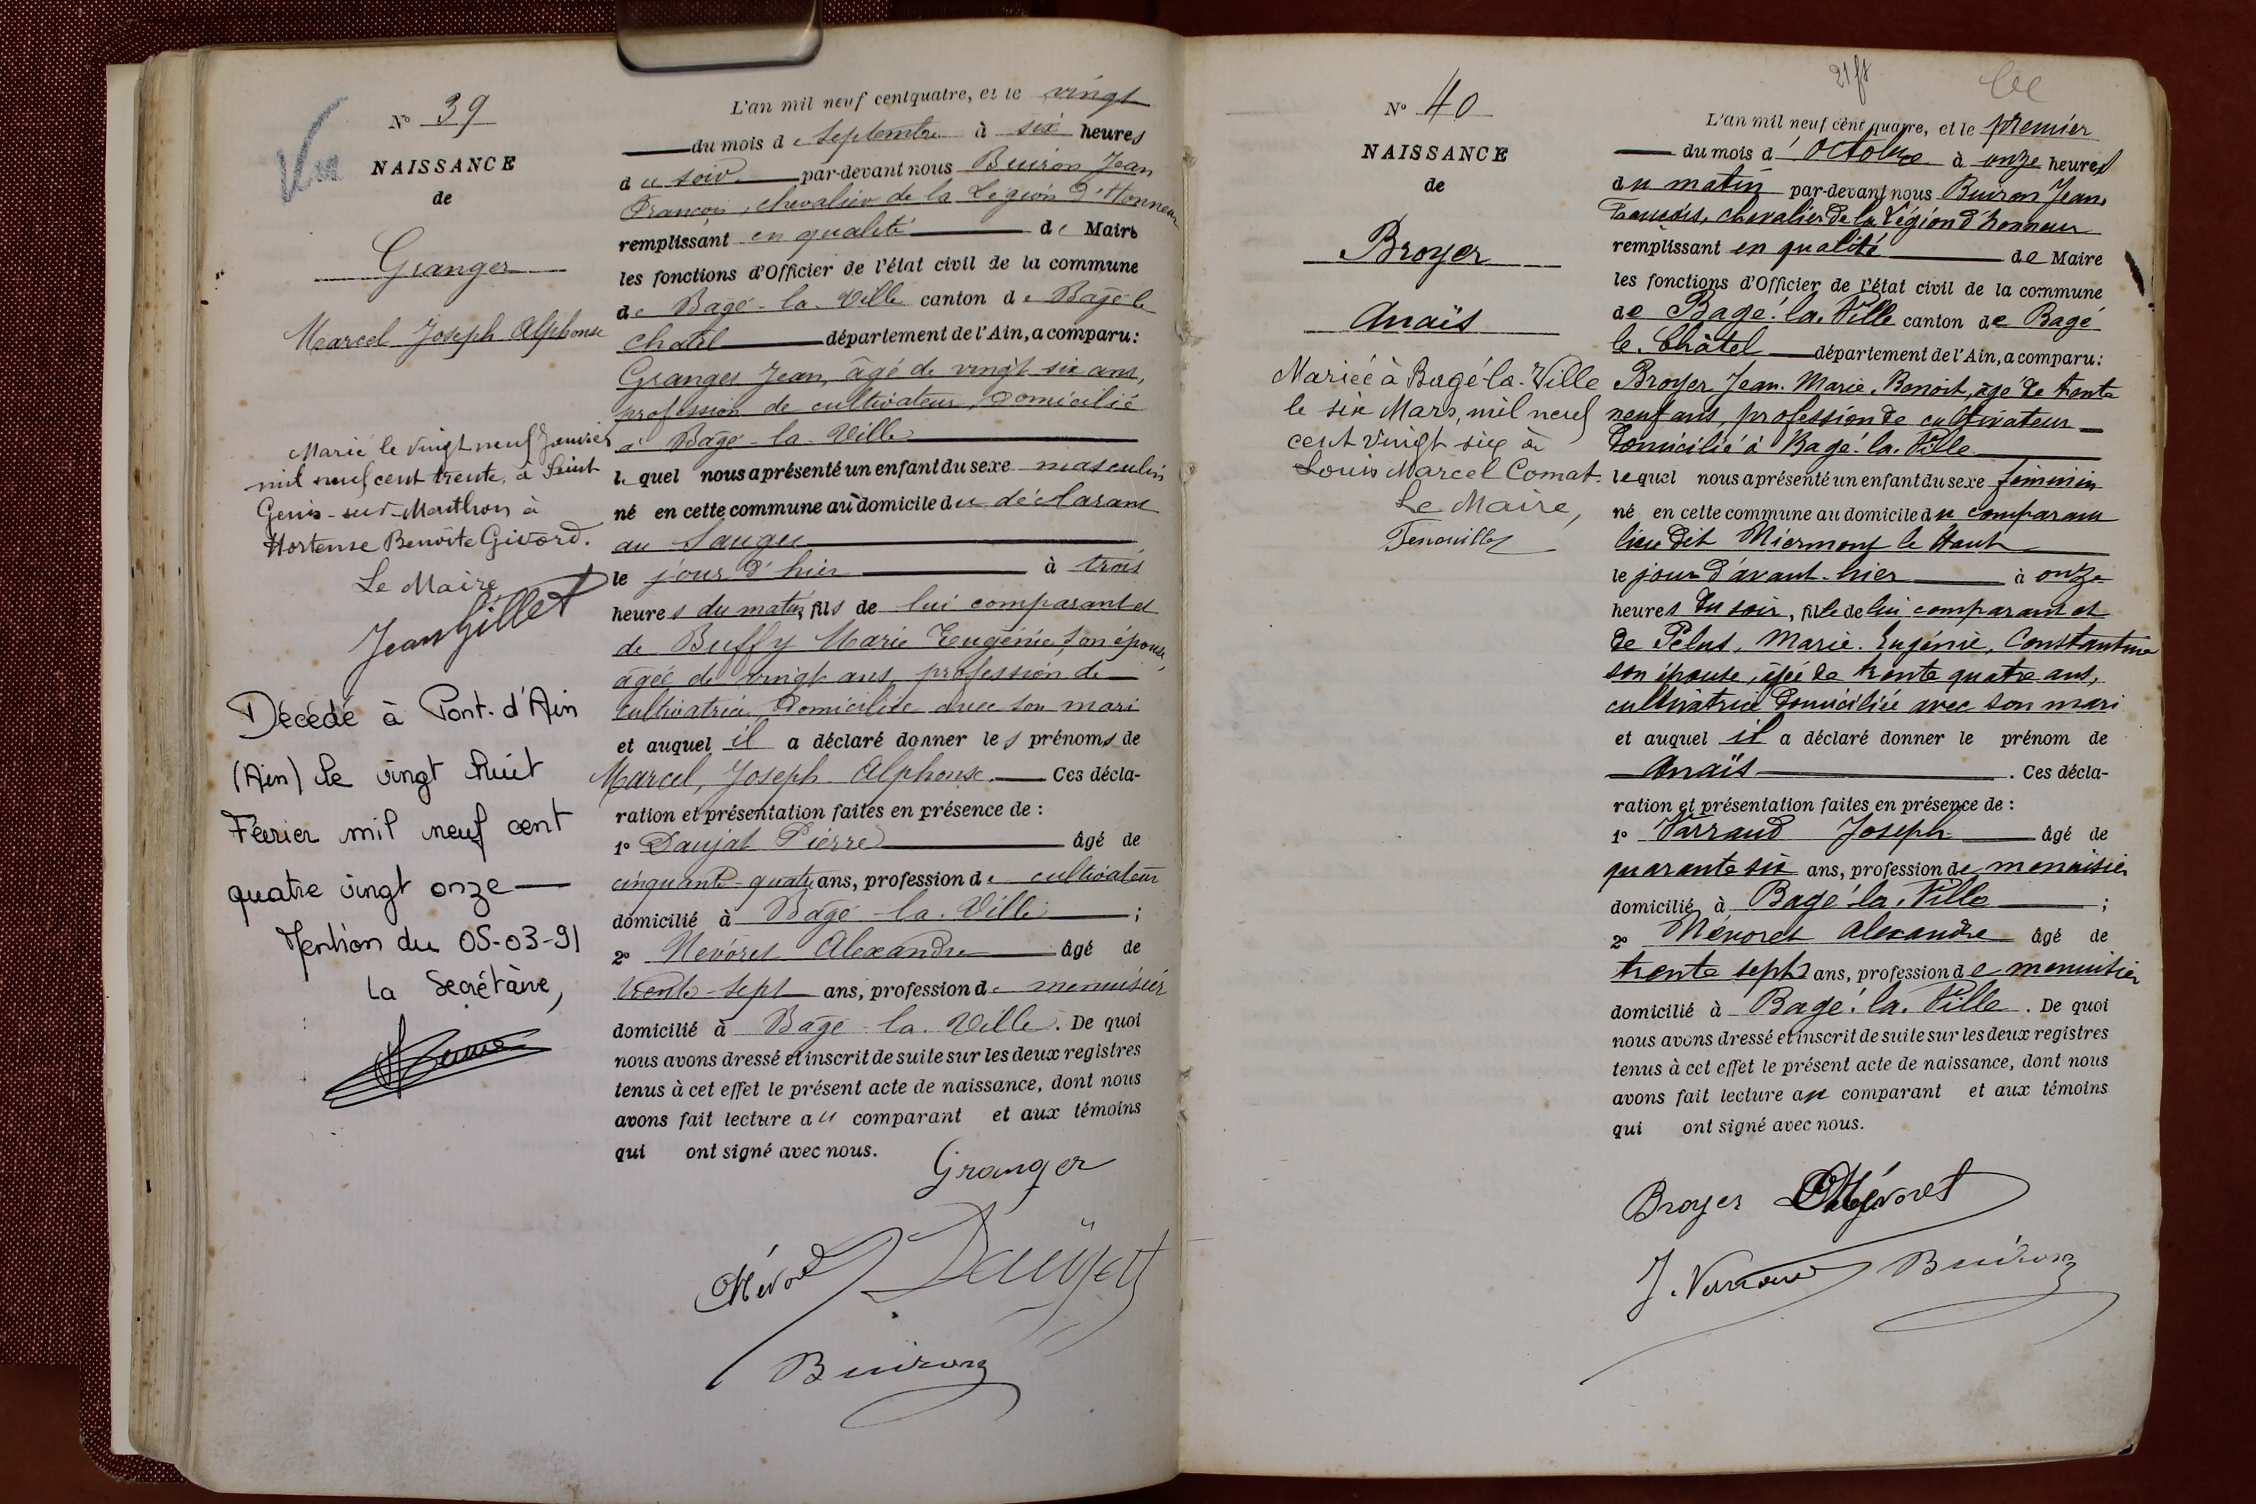 Vu
N° 39
NAISSANCE
de
Granger
Marcel Joseph Alphonse
Marié le vingt neuf Janvier
mil neuf cent trente, à Saint
Genis-sur-Menthon à
Hortense Benoîte Givord.
Le Maire
Jean Gillet
Décédé à Pont-d'Ain
(Ain) le vingt huit
Février mil neuf cent
quatre vingt onze
Mention du 05-03-91
La Secrétaire,
L'an mil neuf cent quatre, et le vingt
du mois de Septembre à six heures
du soir par-devant nous Buiron Jean
François, chevalier de la Légion d'Honneur
remplissant en qualité de Maire
les fonctions d'Officier de l'état civil de la commune
de Bagé-la-Ville canton de Bagé le
Chatel département de l'Ain, a comparu:
Granger Jean, âgé de vingt six ans,
profession de cultivateur, domicilié
à Bagé-la-Ville
lequel nous a présenté un enfant du sexe masculin
né en cette commune au domicile du déclarant
au Sauger
le jour d'hier à trois
heures du matin, fils de lui comparant et
de Buffy Marie Eugénie, son épouse,
âgée de vingt ans, profession de
cultivatrice, domiciliée avec son mari
et auquel il a déclaré donner les prénoms de
Marcel, Joseph Alphonse. Ces décla-
ration et présentation faites en présence de :
1° Daujat Pierre âgé de
cinquante-quatre ans, profession de cultivateur
domicilié à Bagé-la-Ville ;
2° Mévoret Alexandre âgé de
trente-sept ans, profession de menuisier
domicilié à Bagé-la-Ville. De quoi
nous avons dressé et inscrit de suite sur les deux registres
tenus à cet effet le présent acte de naissance, dont nous
avons fait lecture au comparant et aux témoins
qui ont signé avec nous.
Granger
Mévoret
Buiron
N° 40
NAISSANCE
de
Broyer
Anaïs
Mariée à Bagé-la-Ville
le six Mars, mil neuf
cent vingt six à
Louis Marcel Comat.
Le Maire,
L'an mil neuf cent quatre, et le premier
du mois d'octobre à onze heures
du matin par-devant nous Buiron Jean
François, chevalier de la Légion d'honneur
remplissant en qualité de Maire
les fonctions d'Officier de l'état civil de la commune
de Bagé-la-Ville canton de Bagé
le Châtel département de l'Ain, a comparu:
Broyer, Jean-Marie, Benoit, âgé de trente
neuf ans, profession de cultivateur
domicilié à Bagé-la-Ville
lequel nous a présenté un enfant du sexe féminin
né en cette commune au domicile du comparant
lieu dit Miermont le Haut
le jour d'avant-hier à onze
heures du soir, fille de lui comparant et
de Pelus, Marie-Eugénie, Constantine
son épouse, âgée de trente quatre ans,
cultivatrice domiciliée avec son mari
et auquel il a déclaré donner le prénom de
Anaïs. Ces décla-
ration et présentation faites en présence de :
1° Varraud Joseph âgé de
quarante six ans, profession de menuisier
domicilié à Bagé-la-Ville ;
2° Mévoret Alexandre âgé de
trente sept ans, profession de menuisier
domicilié à Bagé-la-Ville. De quoi
nous avons dressé et inscrit de suite sur les deux registres
tenus à cet effet le présent acte de naissance, dont nous
avons fait lecture au comparant et aux témoins
qui ont signé avec nous.
Broyer Mévoret
Buiron